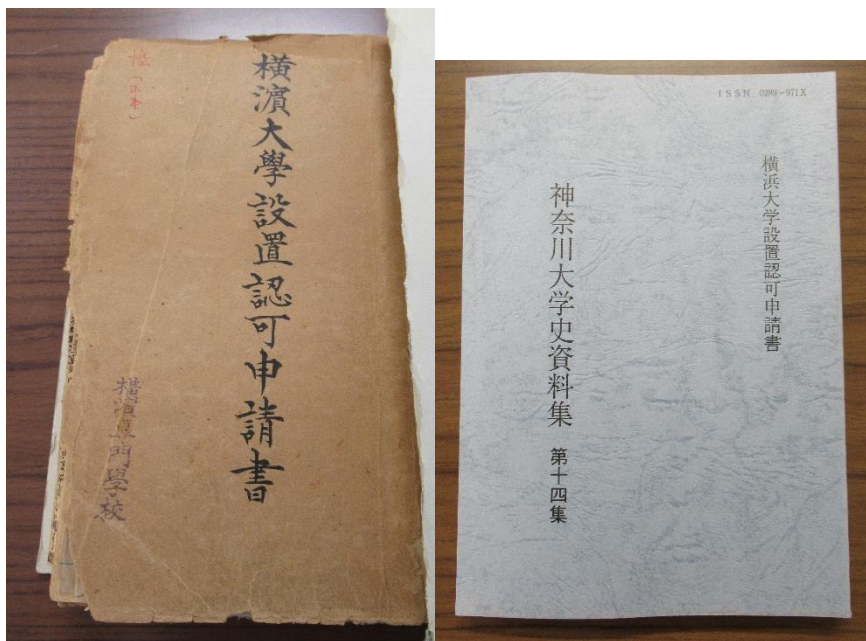 横濱大學設置認可申請書
控(正本)
横濱専門學校
ISSN 0289-971X
横浜大学設置認可申請書
神奈川大学史資料集 第十四集